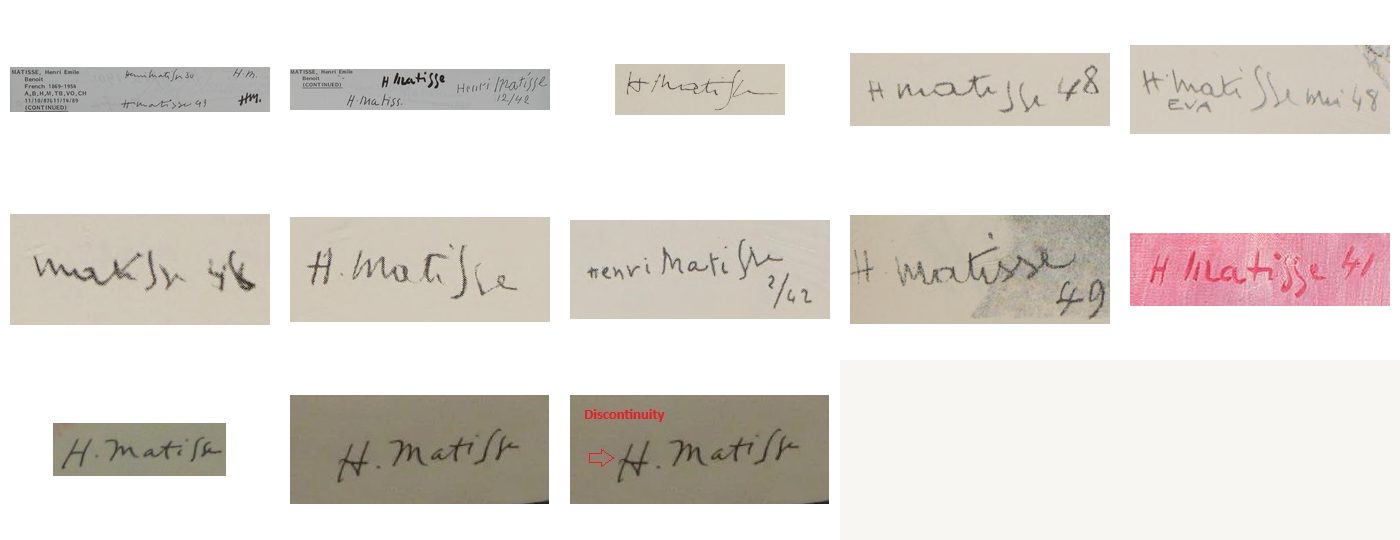 MATISSE, Henri Emile
Benoit
French 1869-1954
A,B,H,M,TB,VO,CH
(CONTINUED)
Henri Matisse
H.M.
H matisse 49
HM.
MATISSE, Henri Emile
Benoit
(CONTINUED)
H matisse
Henri Matisse
12/42
H. matiss.
H. Matisse
H matisse 48
H. Matisse mai 48
EVA
matisse 48
H. Matisse
Henri Matisse
2/42
H. matisse
49
H Matisse 41
H. Matisse
H. Matisse
Discontinuity
H. Matisse